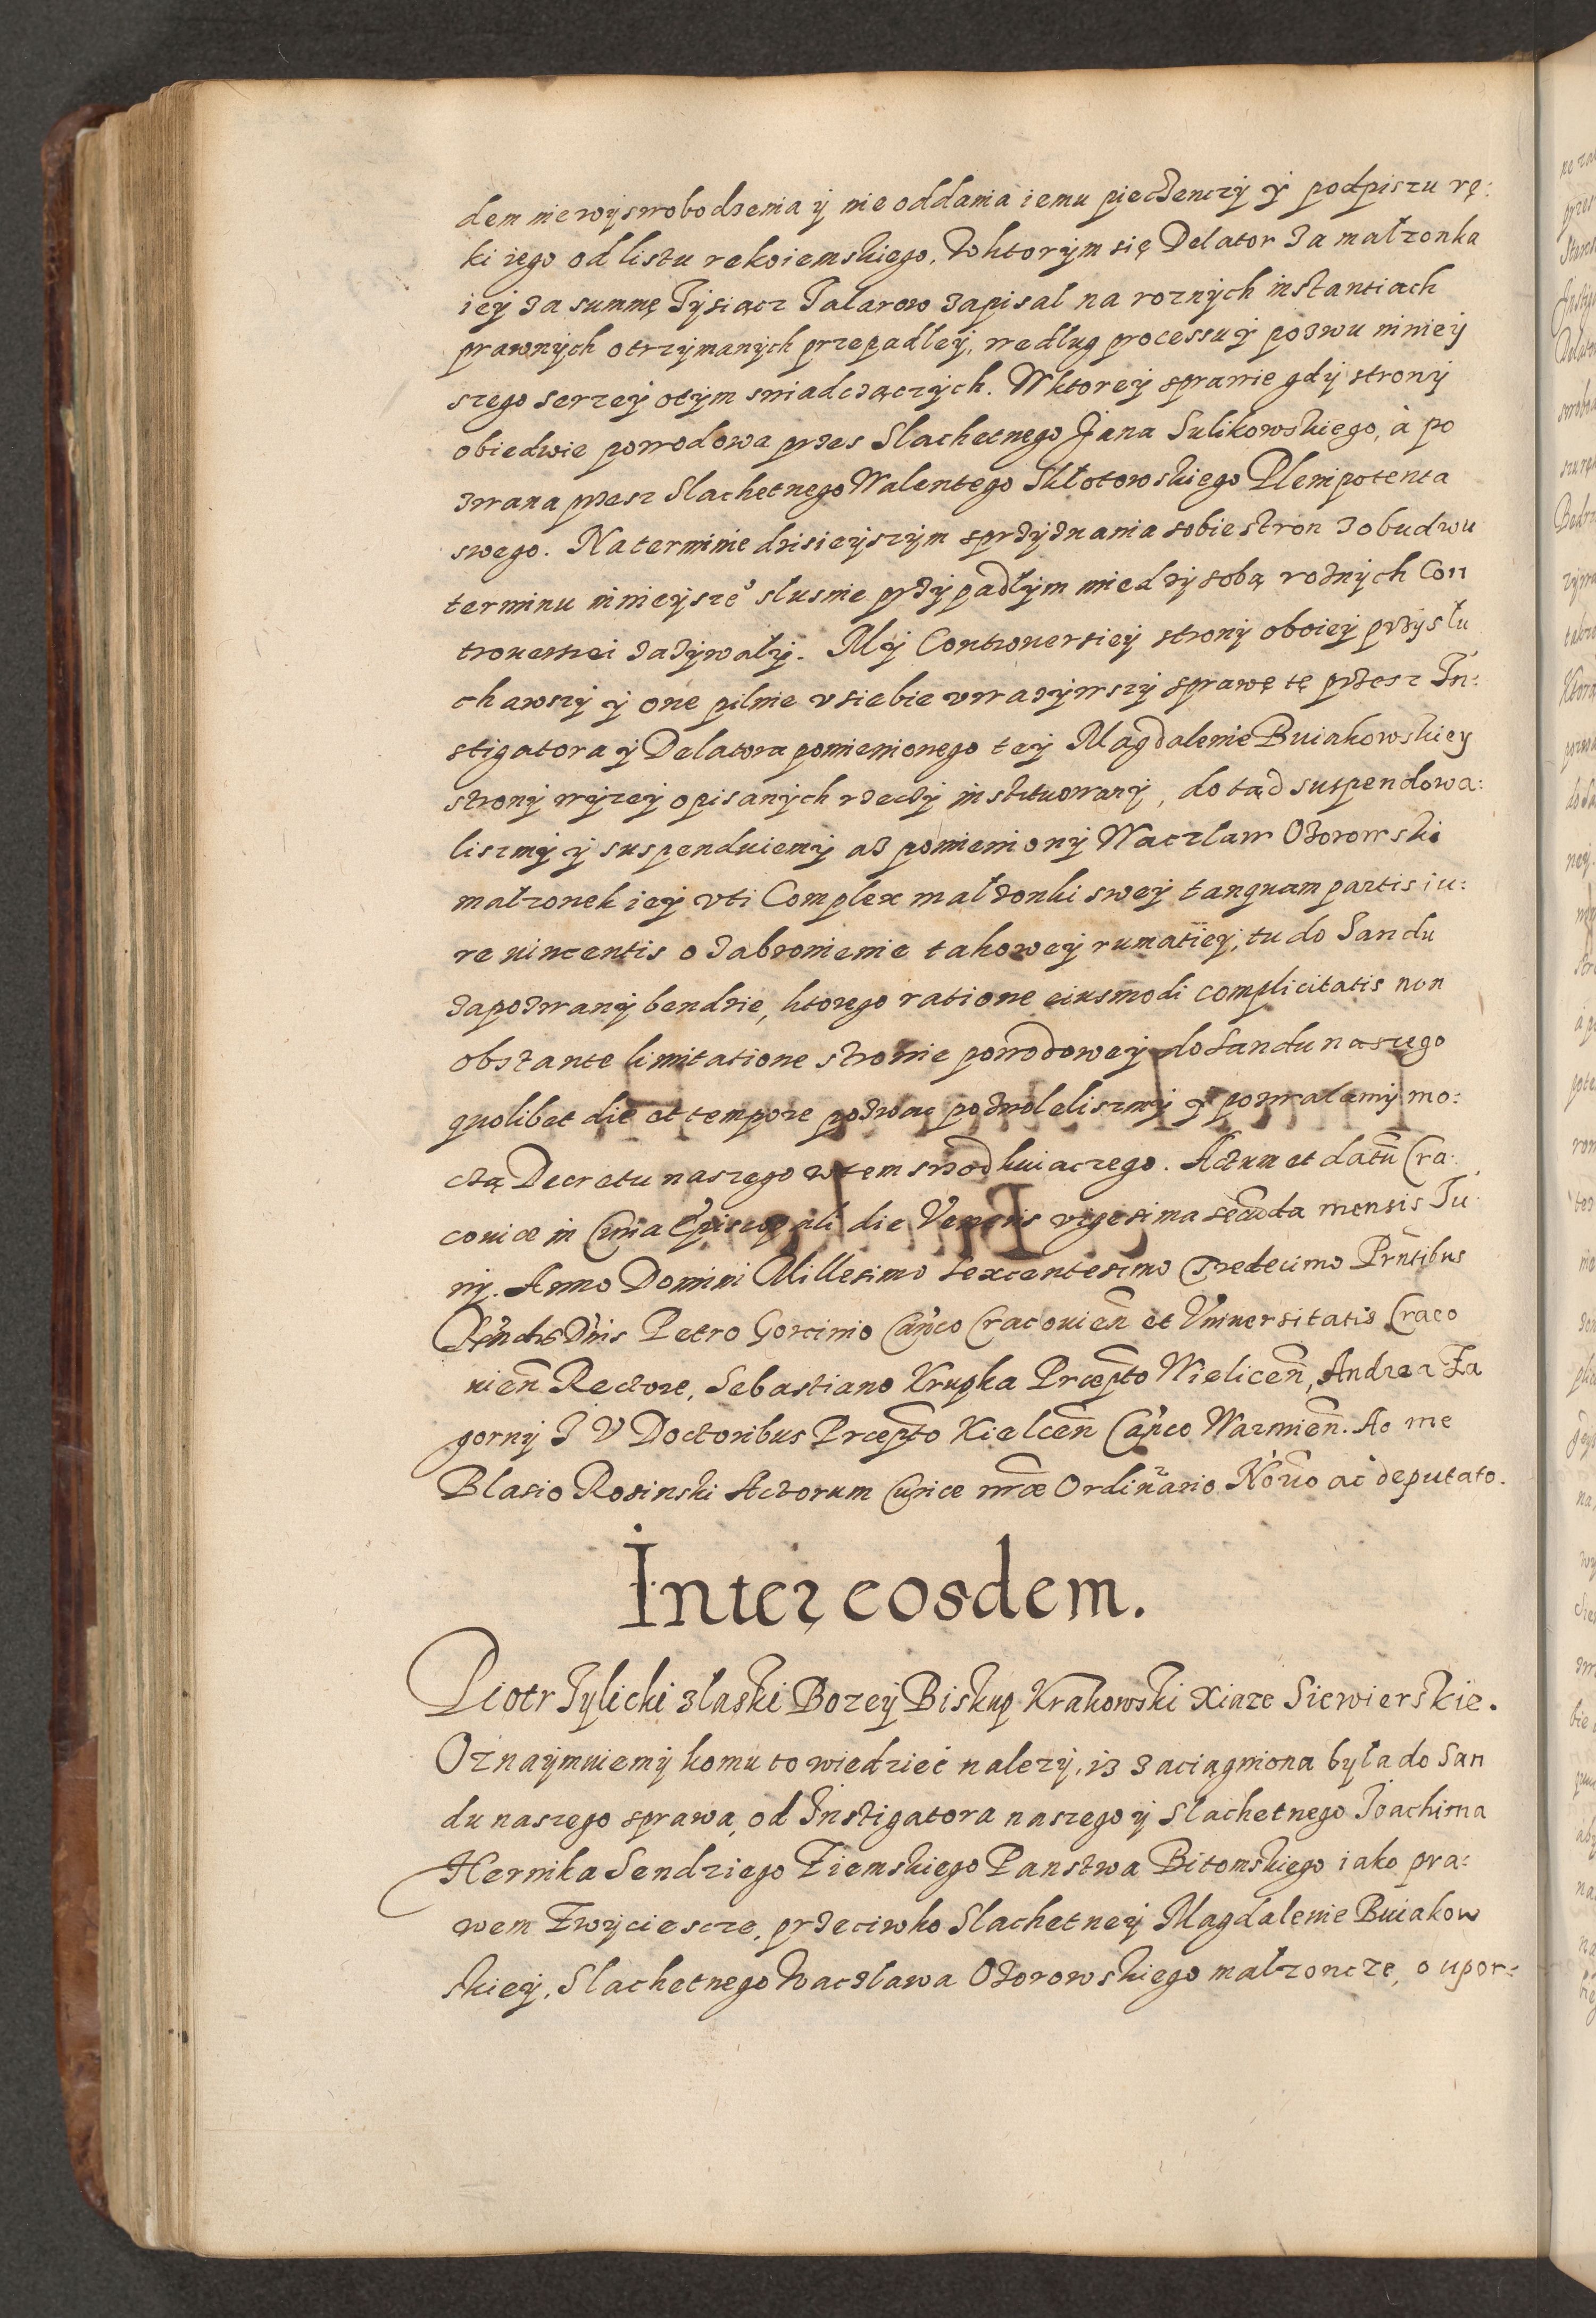 dem niewyswobodzenia ÿ nie oddania iemu pieczenczÿ ÿ podpiszu rę:
ki iego od listu rekoiemskiego, w ktorÿm się Delator za małzonka
ieÿ za summę Tÿsiącz Talarow zapisal na roznÿch instantiach
prawnÿch otrzÿmanÿch przepadłeÿ, według processu ÿ pozwu ninieÿ
szego serzeÿ otÿm swiadczączÿch. W ktoreÿ sprawie gdÿ stronÿ
obiedwie powodowa przes Slachetnego Jana Sulikowskiego, à po
zwana przesz Slachetnego Walentego Skłotowskiego Plenipotenta
swego. Na terminie dzisieÿszÿm sprzÿznania sobie stron z obudwu
terminu ninieÿszeº slusnie przÿpadłÿm miedzÿ sobą roznÿch Con
trouersiei zazÿwałÿ. Mÿ Controuersieÿ stronÿ oboieÿ przÿsłu
chawszÿ ÿ one pilnie v siebie vwazÿwszÿ sprawę tę przesz In:
stigatora ÿ Delatora pomienionego teÿ Magdalenie Buiakowskieÿ
stronÿ wÿzeÿ opisanÿch rzeczÿ instituowanÿ, dotąd suspendowa:
liszmÿ ÿ suspenduiemÿ az pomienionÿ Waczlaw Ozorowski
małzonek ieÿ vti Complex małzonki sweÿ tanquam partis iu:
re uincentis o zabronienie takoweÿ rumatieÿ, tu do Sandu
zapozwanÿ bendzie, ktorego ratione eiusmodi complicitatis non
obstante limitatione stronie powodoweÿ do Sandu naszego
quolibet die et tempore pozwac pozwoleliszmÿ ÿ pozwalamÿ mo:
czą Decretu naszego wtem srzodkuiaczego. Actum et datū Cra:
couiæ in Curia Episcopali die Veneris vigesima secūda mensis Iu
nÿ. Anno Domini Millesimo sexcentesimo Tredecimo Prñtibus
Rñdis Dñis Petro Gorcinio Cañco Cracouieñ et Vniuersitatis Craco
uieñ Rectore, Sebastiano Krupka Præpto Wielicen̄, Andrea Za
gornÿ I V Doctoribus Præpto Kielcen̄ Cañco Warmien̄. Ac me
Blasio Rosinski Actorum Curiæ nr̄æ Ordinario Noŕio ac deputato.
Inter eosdem.
Piotr Tÿlicki z laski Bozeÿ Biskup Krakowski Xiaze Siewierskie.
Oznaÿmuiemÿ komu to wiedzieć nalezÿ, iz zaciągniona była do San
du naszego sprawa, od Instigatora naszego ÿ Slachetnego Ioachima
Hernika Sendziego Ziemskiego Panstwa Bitomskiego iako pra:
wem Zwÿciescze, przeciwko Slachetneÿ Magdalenie Buiakow
skieÿ, Slachetnego Waczława Ozorowskiego małzoncze, o upor: